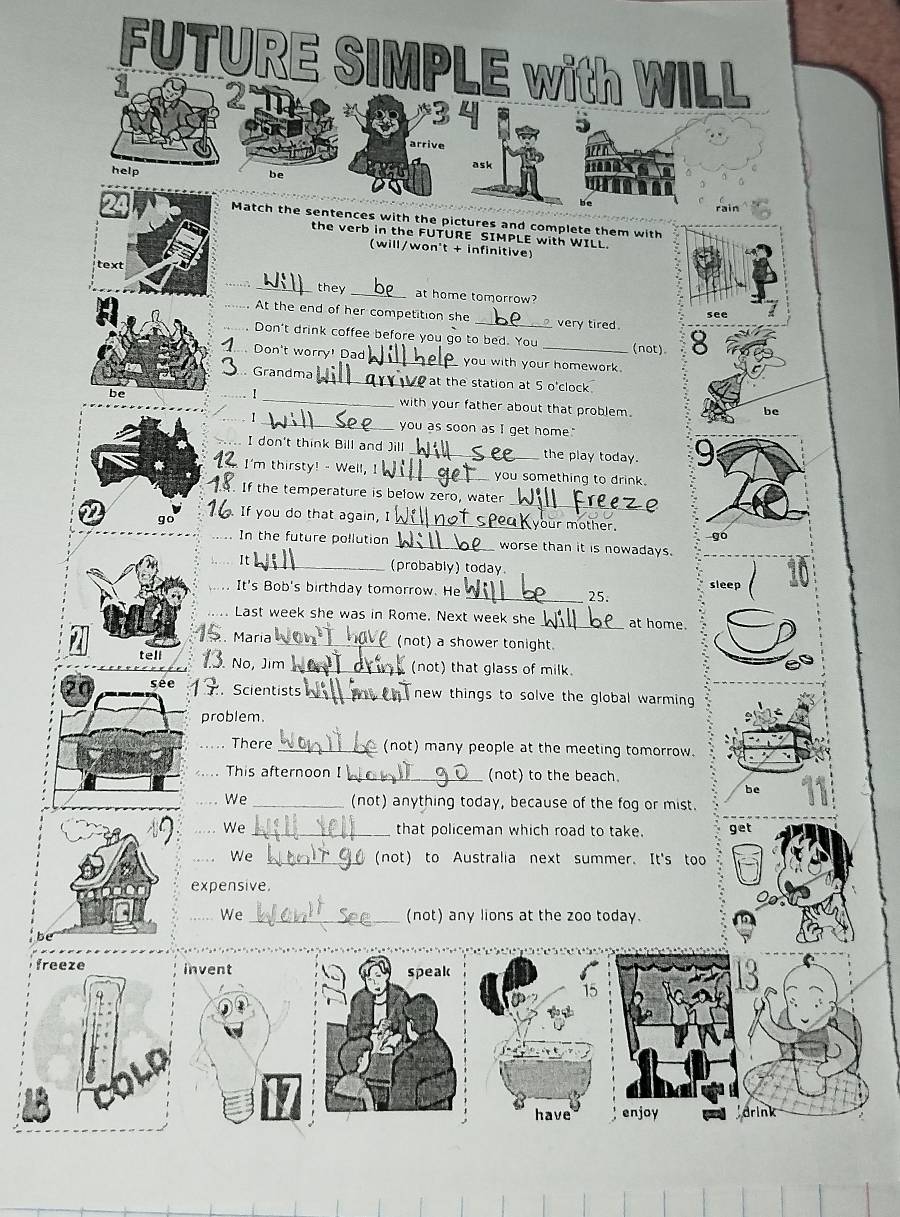 FUTURE SIMPLE with WILL
1 2 3 4 5
help be arrive ask be rain 6
24 text
Match the sentences with the pictures and complete them with
the verb in the FUTURE SIMPLE with WILL.
(will/won't + infinitive)
see 7
...... Will they be at home tomorrow?
...... At the end of her competition she be very tired.
...... Don't drink coffee before you go to bed. You ________ (not).
1... Don't worry! Dad will help you with your homework.
3... Grandma will arrive at the station at 5 o'clock.
...... I ________ with your father about that problem.
...... I will see you as soon as I get home"
...... I don't think Bill and Jill will see the play today.
12 I'm thirsty! - Well, I will get you something to drink.
18. If the temperature is below zero, water will freeze
16. If you do that again, I will not speak your mother.
..... In the future pollution will be worse than it is nowadays.
..... It will (probably) today.
..... It's Bob's birthday tomorrow. He will be 25.
..... Last week she was in Rome. Next week she will be at home.
15. Maria won't have (not) a shower tonight.
13. No, Jim won't drink (not) that glass of milk.
17.. Scientists will invent new things to solve the global warming
problem.
..... There won't be (not) many people at the meeting tomorrow.
..... This afternoon I won't go (not) to the beach.
..... We ________ (not) anything today, because of the fog or mist.
..... We will tell that policeman which road to take.
..... We won't go (not) to Australia next summer. It's too
expensive.
..... We won't see (not) any lions at the zoo today.
be
22 go
21 tell
20 see
19
be
8 be
9 go
sleep 10
be 11
get
freeze invent speak 15 13
COLD
18 17 have enjoy 14 drink